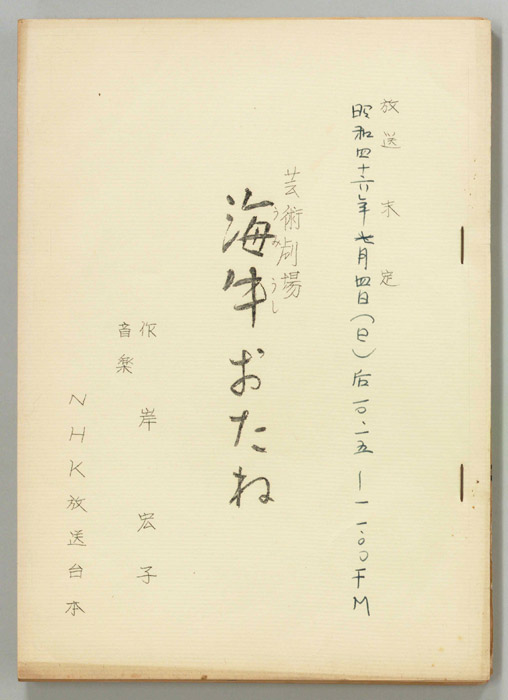 放送未定
昭和四十六年七月四日（日）后一〇.一五〜一一.〇〇FM
芸術劇場
海牛おたね
うみうし
作 岸宏子
音楽
NHK放送台本